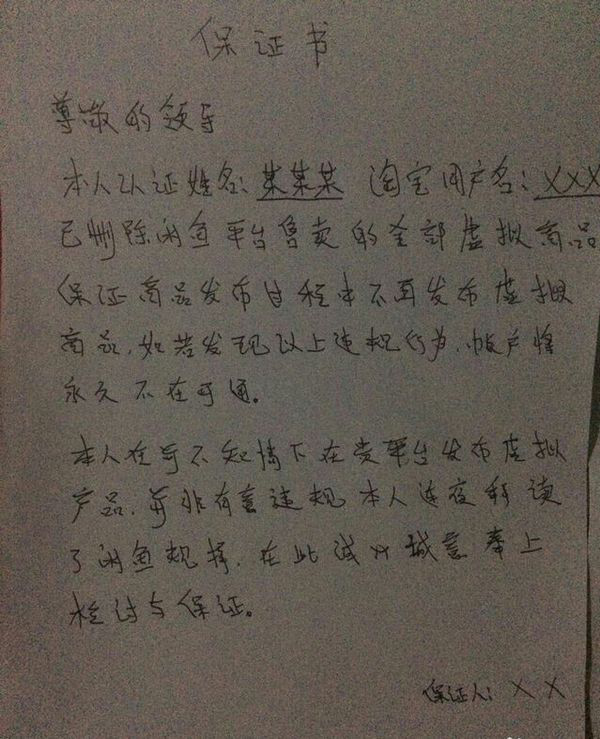 保证书
尊敬的领导
本人认证姓名:某某某 淘宝用户名:XXX
已删除闲鱼平台售卖的全部虚拟商品
保证商品发布过程中不再发布虚拟
商品,如若发现以上违规行为,帐户将
永久不在开通。
本人在毫不知情下在贵平台发布虚拟
产品,并非有意违规 本人连夜科读
了闲鱼规择,在此诚以诚意奉上
检讨与保证。
保证人:XX